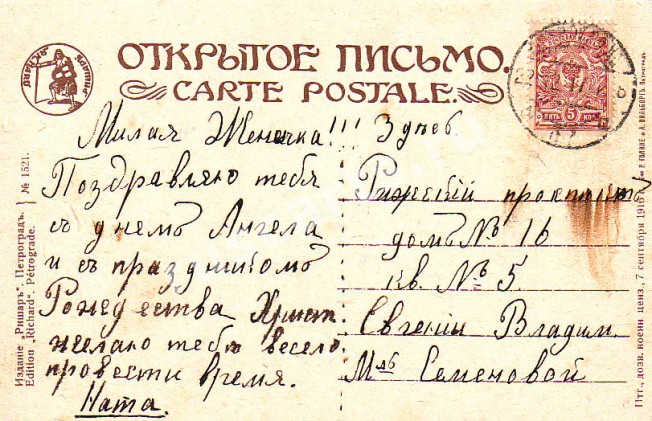 ОТКРЫТОЕ ПИСЬМО.
CARTE POSTALE.
Милая Женичка!!!
Поздравляю тебя
съ днемъ Ангела
и съ праздникомъ
Рождества Христ.
желаю тебѣ весело
провести время.
Ната.
Здѣсь.
Рижскій проспектъ
домъ № 16
кв. № 5.
Евгеніи Владим.
Семеновой
Изданіе „Ришаръ“. Петроградъ.
Edition „Richard“. Pétrograde.
№ 1521.
Птг., дозв. воен. ценз., 7 сентября 1916 г.
ПЯТЬ 5 КОП.